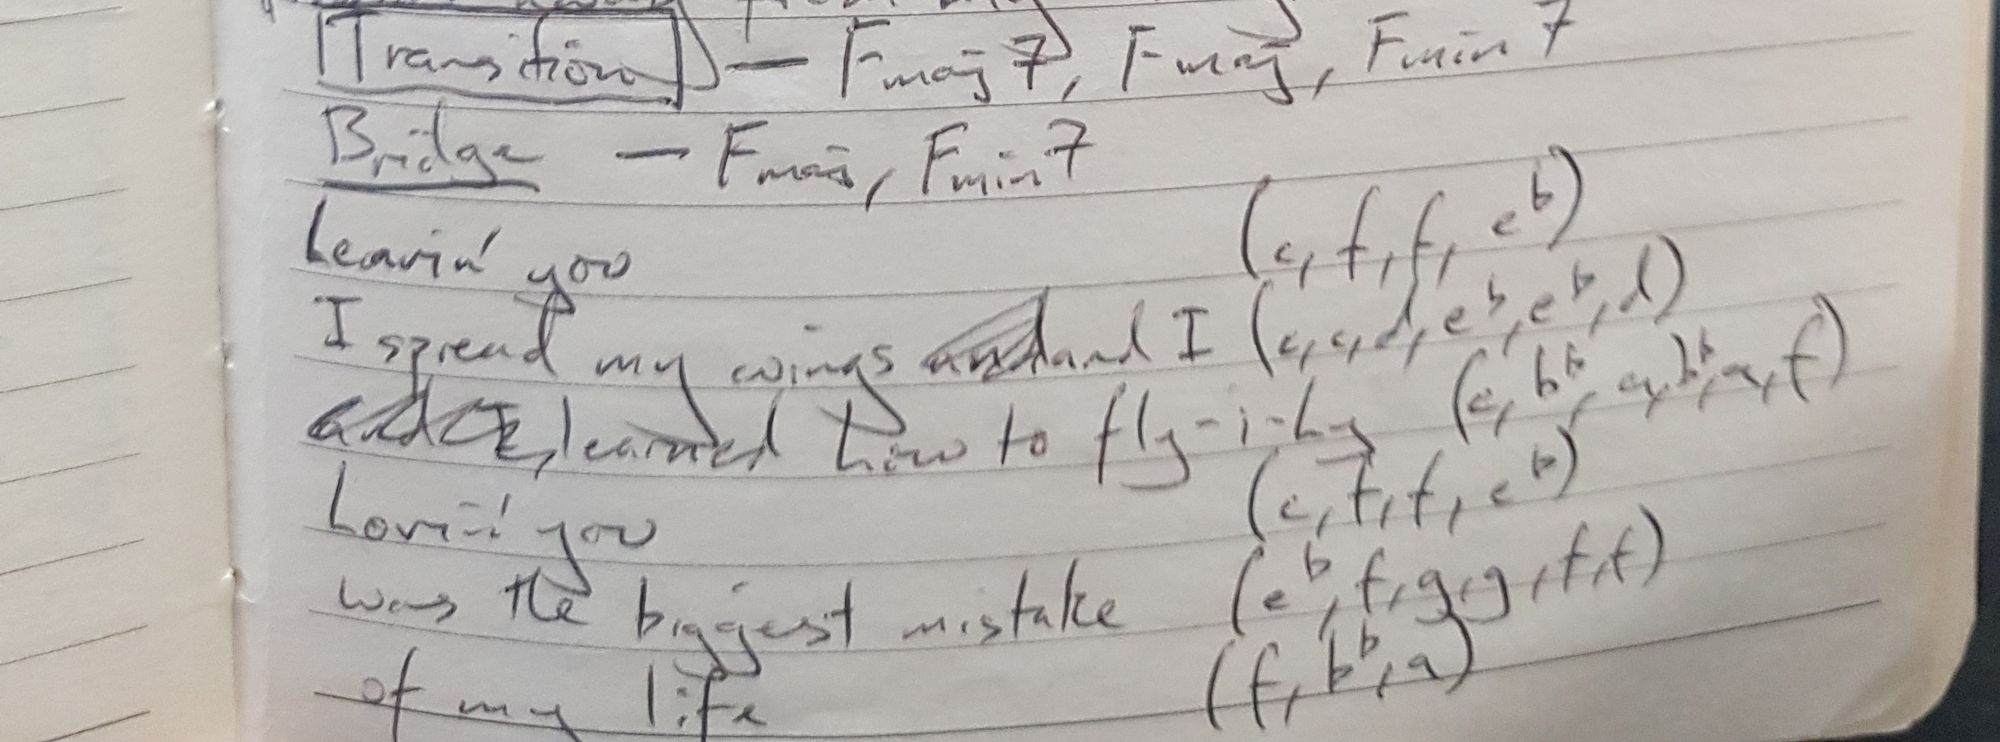 Transition — Fmaj7, Fmaj, Fmin7
Bridge — Fmaj, Fmin7
Leavin' you (c, f, f, e♭)
I spread my wings and I (c, c, d, e♭, e♭, d)
learned how to fly-i-hy (c, b♭, a, b♭, a, f)
Lovin' you (c, f, f, e♭)
was the biggest mistake (e♭, f, g, g, f, f)
of my life (f, b♭, a)